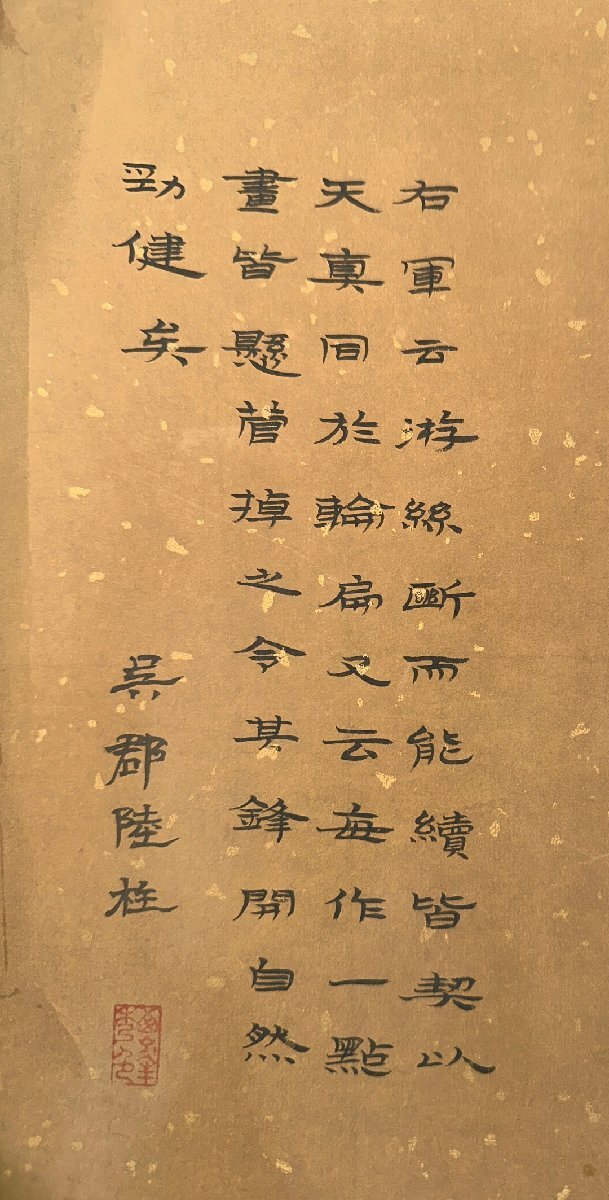 右軍云游絲斷而能續皆契以
天真同於輪扁又云每作一點
畫皆懸管掉之令其鋒開自然
勁健矣
吳郡陸柱